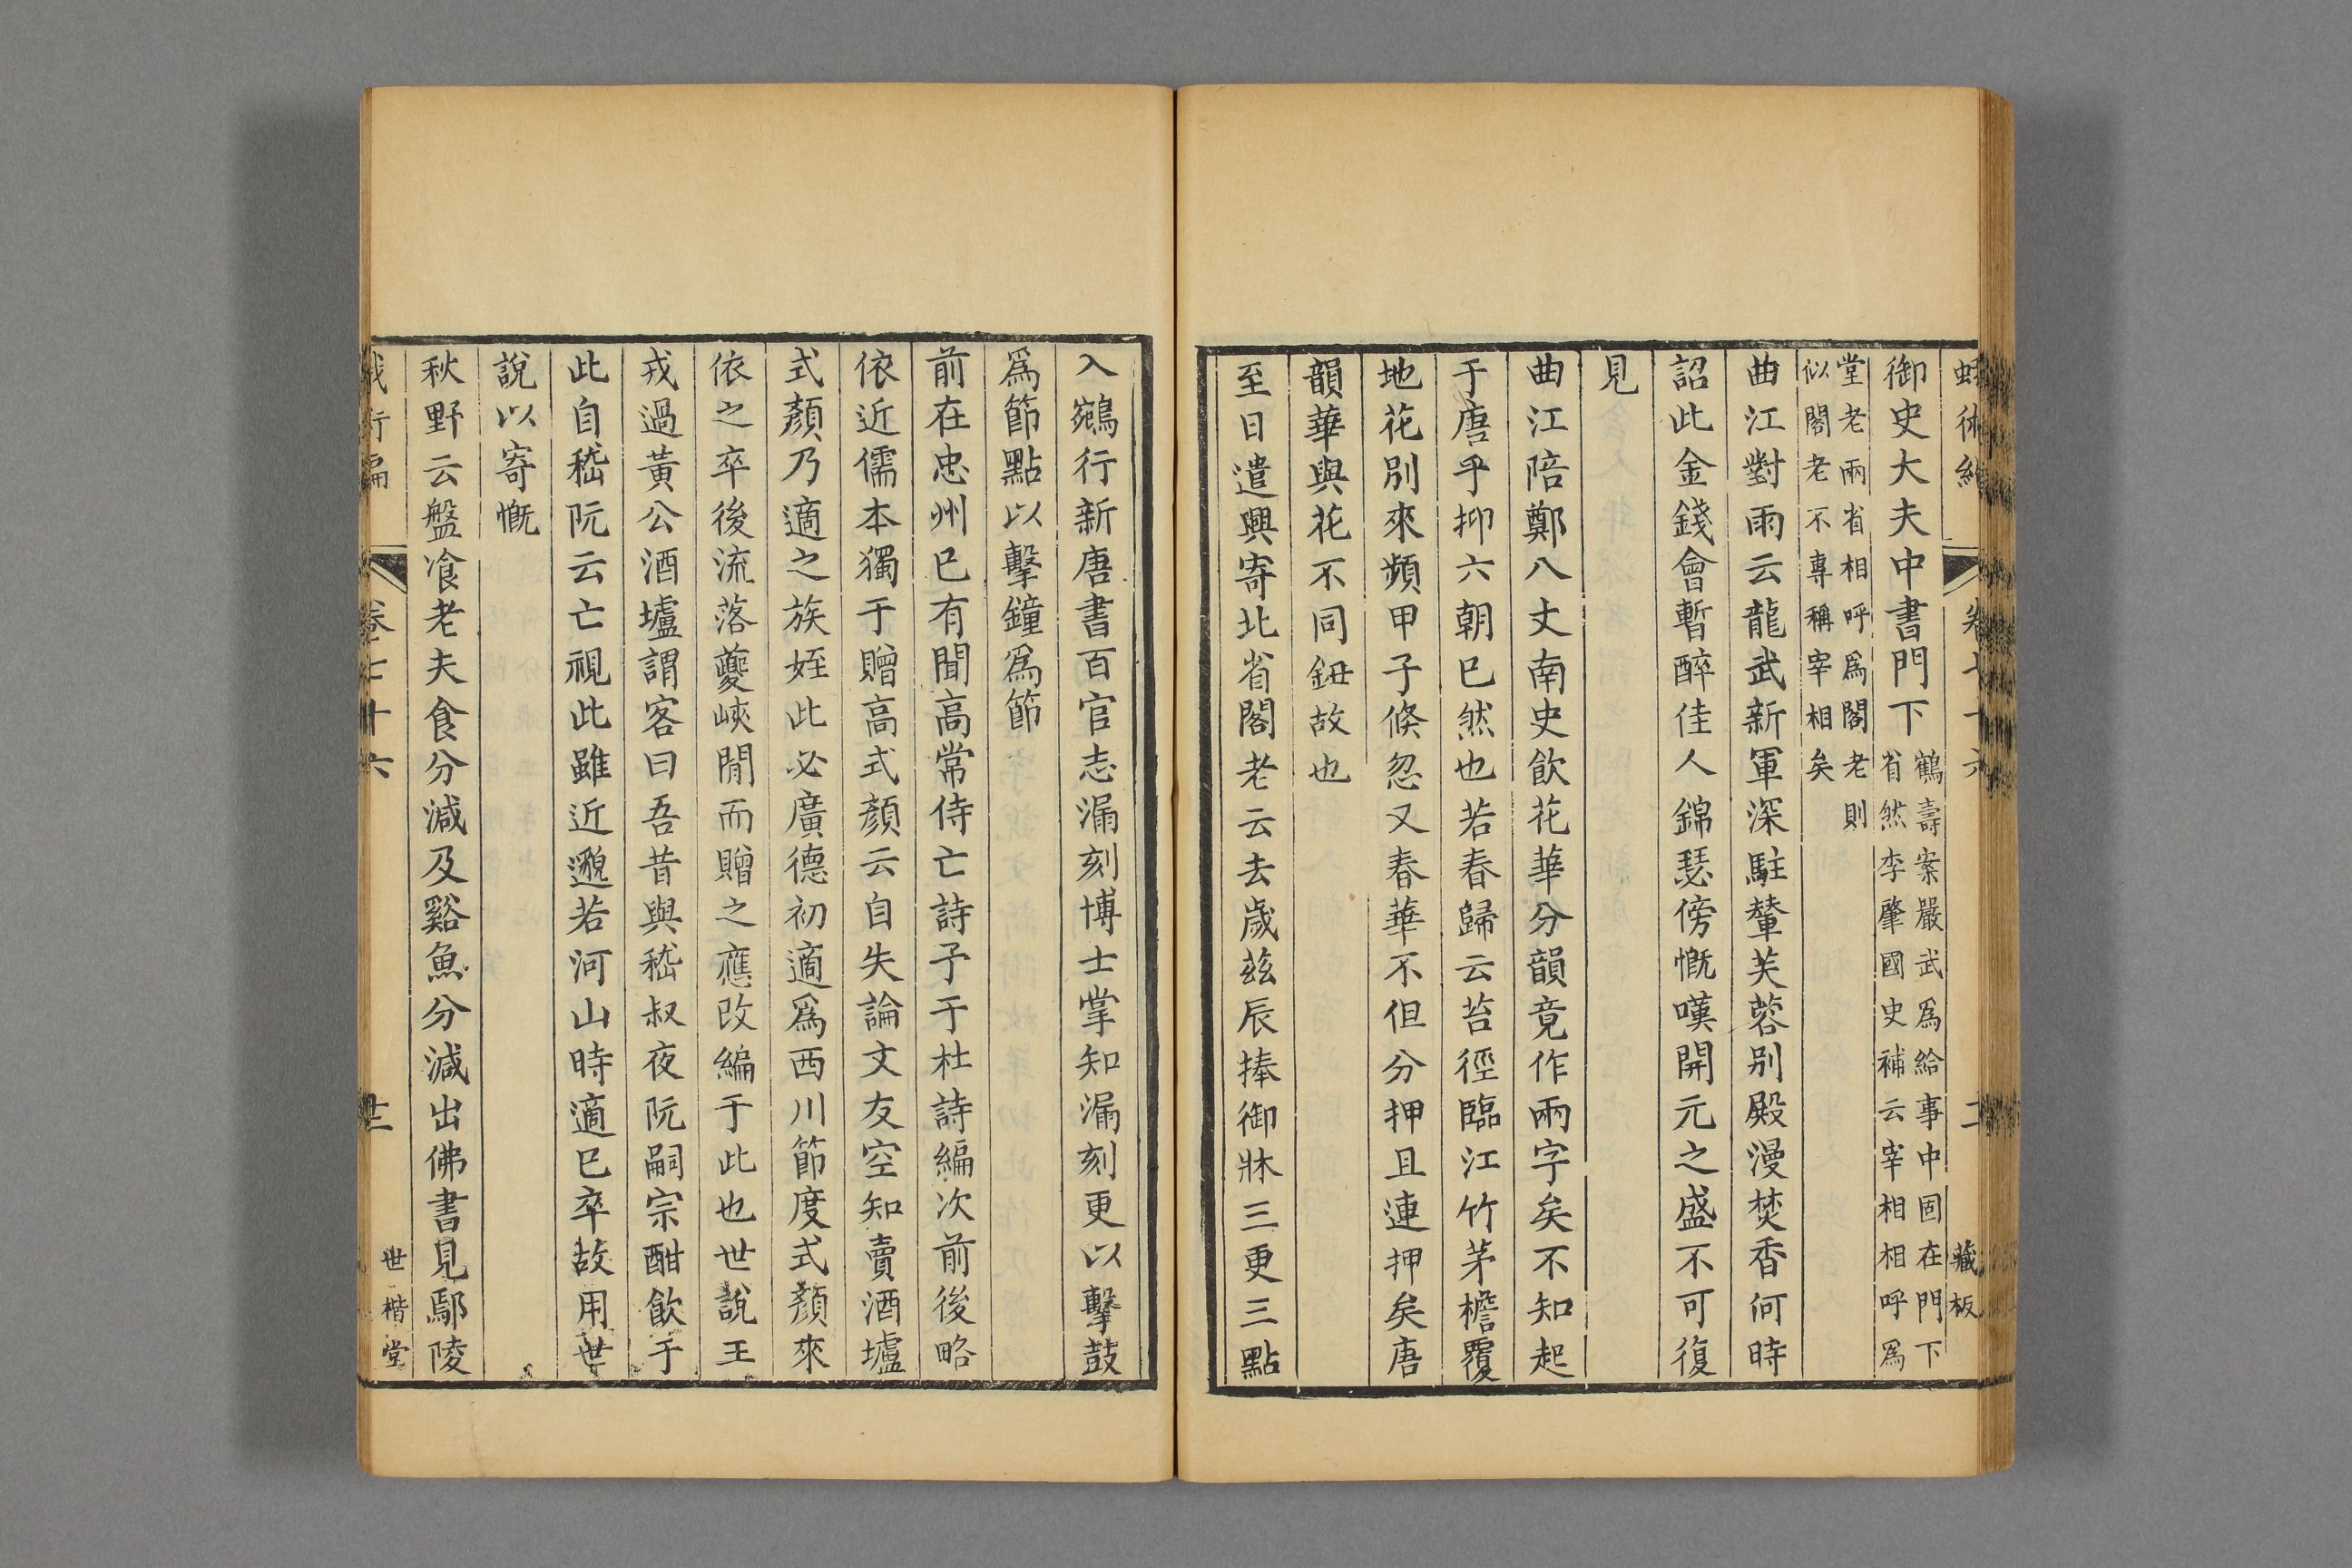 御史大夫中書門下鶴壽案嚴武爲給事中固在門下
省然李肇國史補云宰相相呼爲
堂老兩省相呼爲閣老則
似閣老不專稱宰相矣
曲江對雨云龍武新軍深駐輦芙蓉別殿漫焚香何時
詔此金錢會暫醉佳人錦瑟傍慨嘆開元之盛不可復
見
曲江陪鄭八丈南史飲花華分韻竟作兩字矣不知起
于唐乎抑六朝巳然也若春歸云苔徑臨江竹茅檐覆
地花別來頻甲子倏忽又春華不但分押且連押矣唐
韻華與花不同鈕故也
至日遣興寄北省閣老云去歲茲辰捧御牀三更三點
藏板
入鵷行新唐書百官志漏刻博士掌知漏刻更以擊鼓
爲節點以擊鐘爲節
前在忠州巳有聞高常侍亡詩予于杜詩編次前後略
依近儒本獨于贈高式顏云自失論文友空知賣酒壚
式顏乃適之族姪此必廣德初適爲西川節度式顏來
依之卒後流落夔峽閒而贈之應改編于此也世說王
戎過黃公酒壚謂客曰吾昔與嵇叔夜阮嗣宗酣飲于
此自嵇阮云亡視此雖近邈若河山時適巳卒故用世
說以寄慨
秋野云盤飡老夫食分減及谿魚分減出佛書見鄢陵
卷七十六
世楷堂